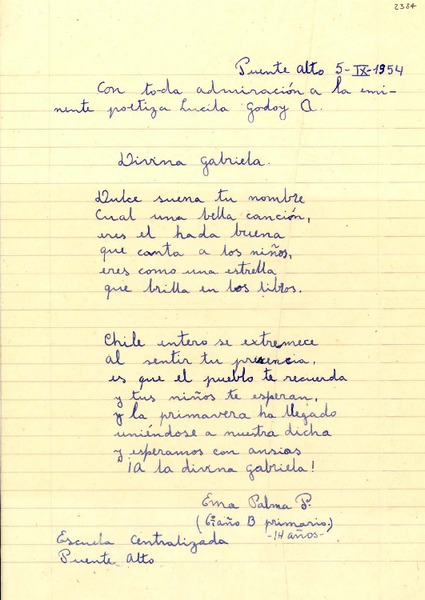 2384
Puente Alto 5-IX-1954
Con toda admiración a la emi-
nente poetiza Lucila Godoy A.
Divina Gabriela.
Dulce suena tu nombre
Cual una bella canción,
eres el hada buena
que canta a los niños,
eres como una estrella
que brilla en los libros.
Chile entero se extremece
al sentir tu presencia,
es que el pueblo te recuerda
y tus niños te esperan,
y la primavera ha llegado
uniéndose a nuestra dicha
y esperamos con ansias
¡A la divina gabriela!
Ema Palma P.
(6º año B primario.)
-14 años-
Escuela Centralizada
Puente Alto